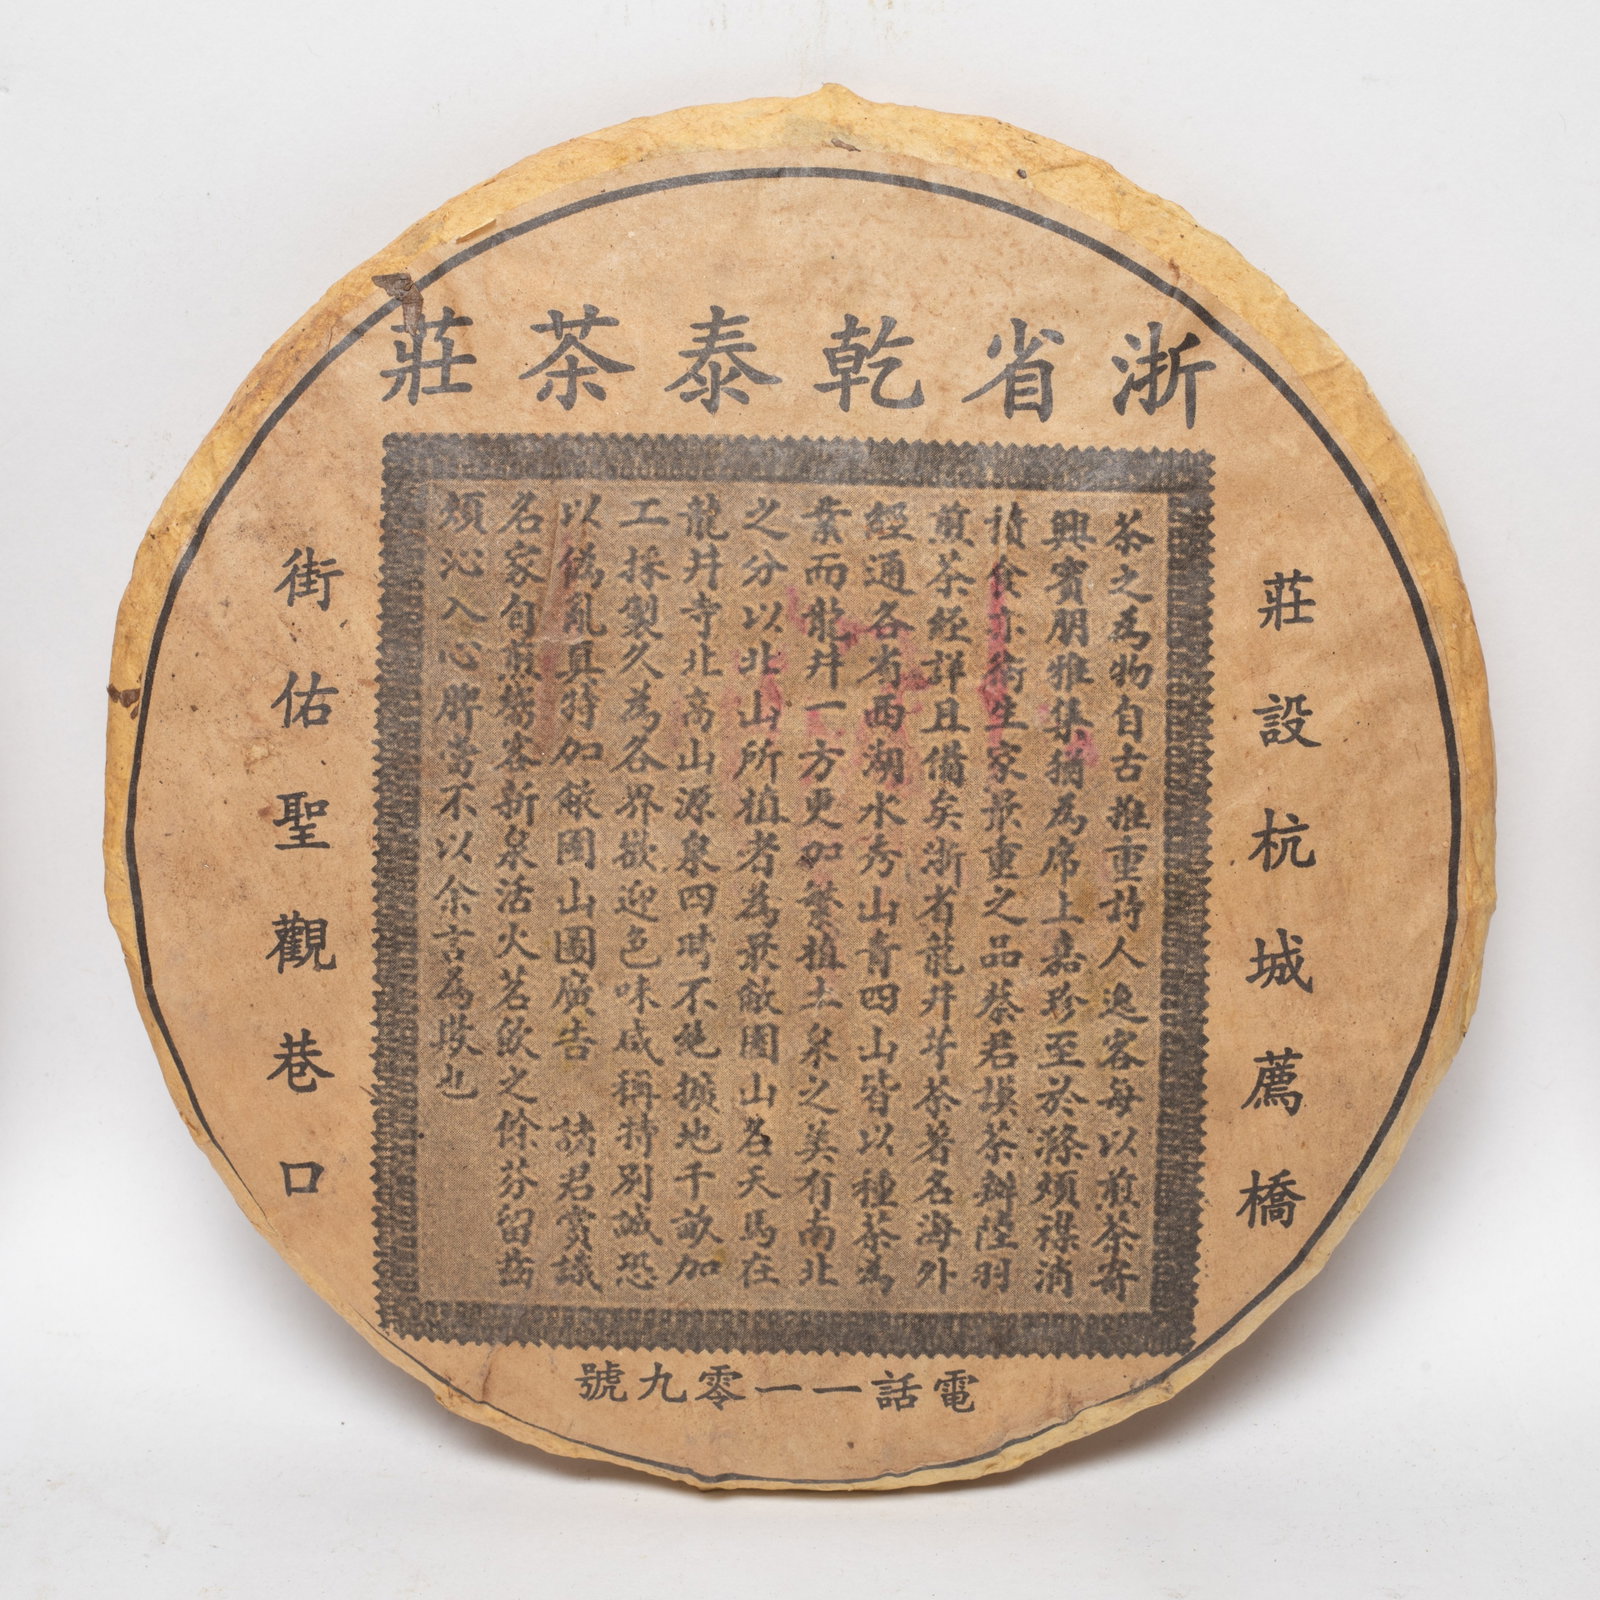 浙省乾泰茶莊
莊設杭城薦橋
街佑聖觀巷口
茶之為物自古推重詩人逸客每以煎茶寄
興賓朋雅集猶為席上嘉珍至於滌煩襟消
積食亦衛生家最重之品蔡君謨茶辨陸羽
煎茶經詳且備矣浙省龍井芽茶著名海外
經通各省西湖水秀山青四山皆以種茶為
業而龍井一方更加繁植土泉之美有南北
之分以北山所植者為最敝園山名天馬在
龍井寺北高山源泉四時不絕擁地千畝加
工採製久為各界歡迎色味咸稱特別誠恐
以偽亂真特加敝園山圖廣告 諸君賞識
名家自煎嚮客新泉活火茗飲之餘芬留齒
頰沁入心脾當不以余言為欺也
電話一一零九號